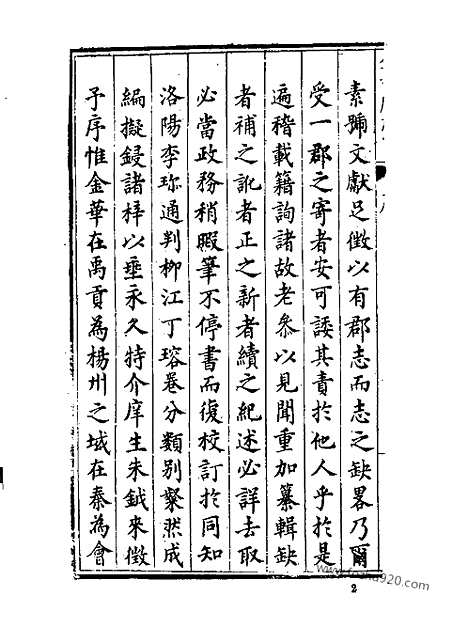 素號文獻足徵以有郡志而志之缺畧乃爾
受一郡之寄者安可諉其責於他人乎於是
遍稽載籍詢諸故老叅以見聞重加纂輯缺
者補之訛者正之新者續之紀述必詳去取
必當政務稍暇筆不停書而復校訂於同知
洛陽李珎通判柳江丁瑢卷分類別粲然成
編擬鋟諸梓以垂永久特介庠生朱鉞來徵
予序惟金華在禹貢為楊州之域在秦為會
2